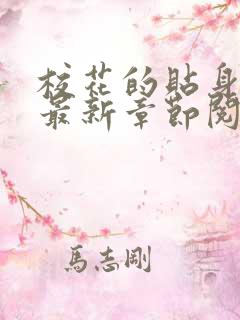 校花的貼身
最新章節閱
馬志剛